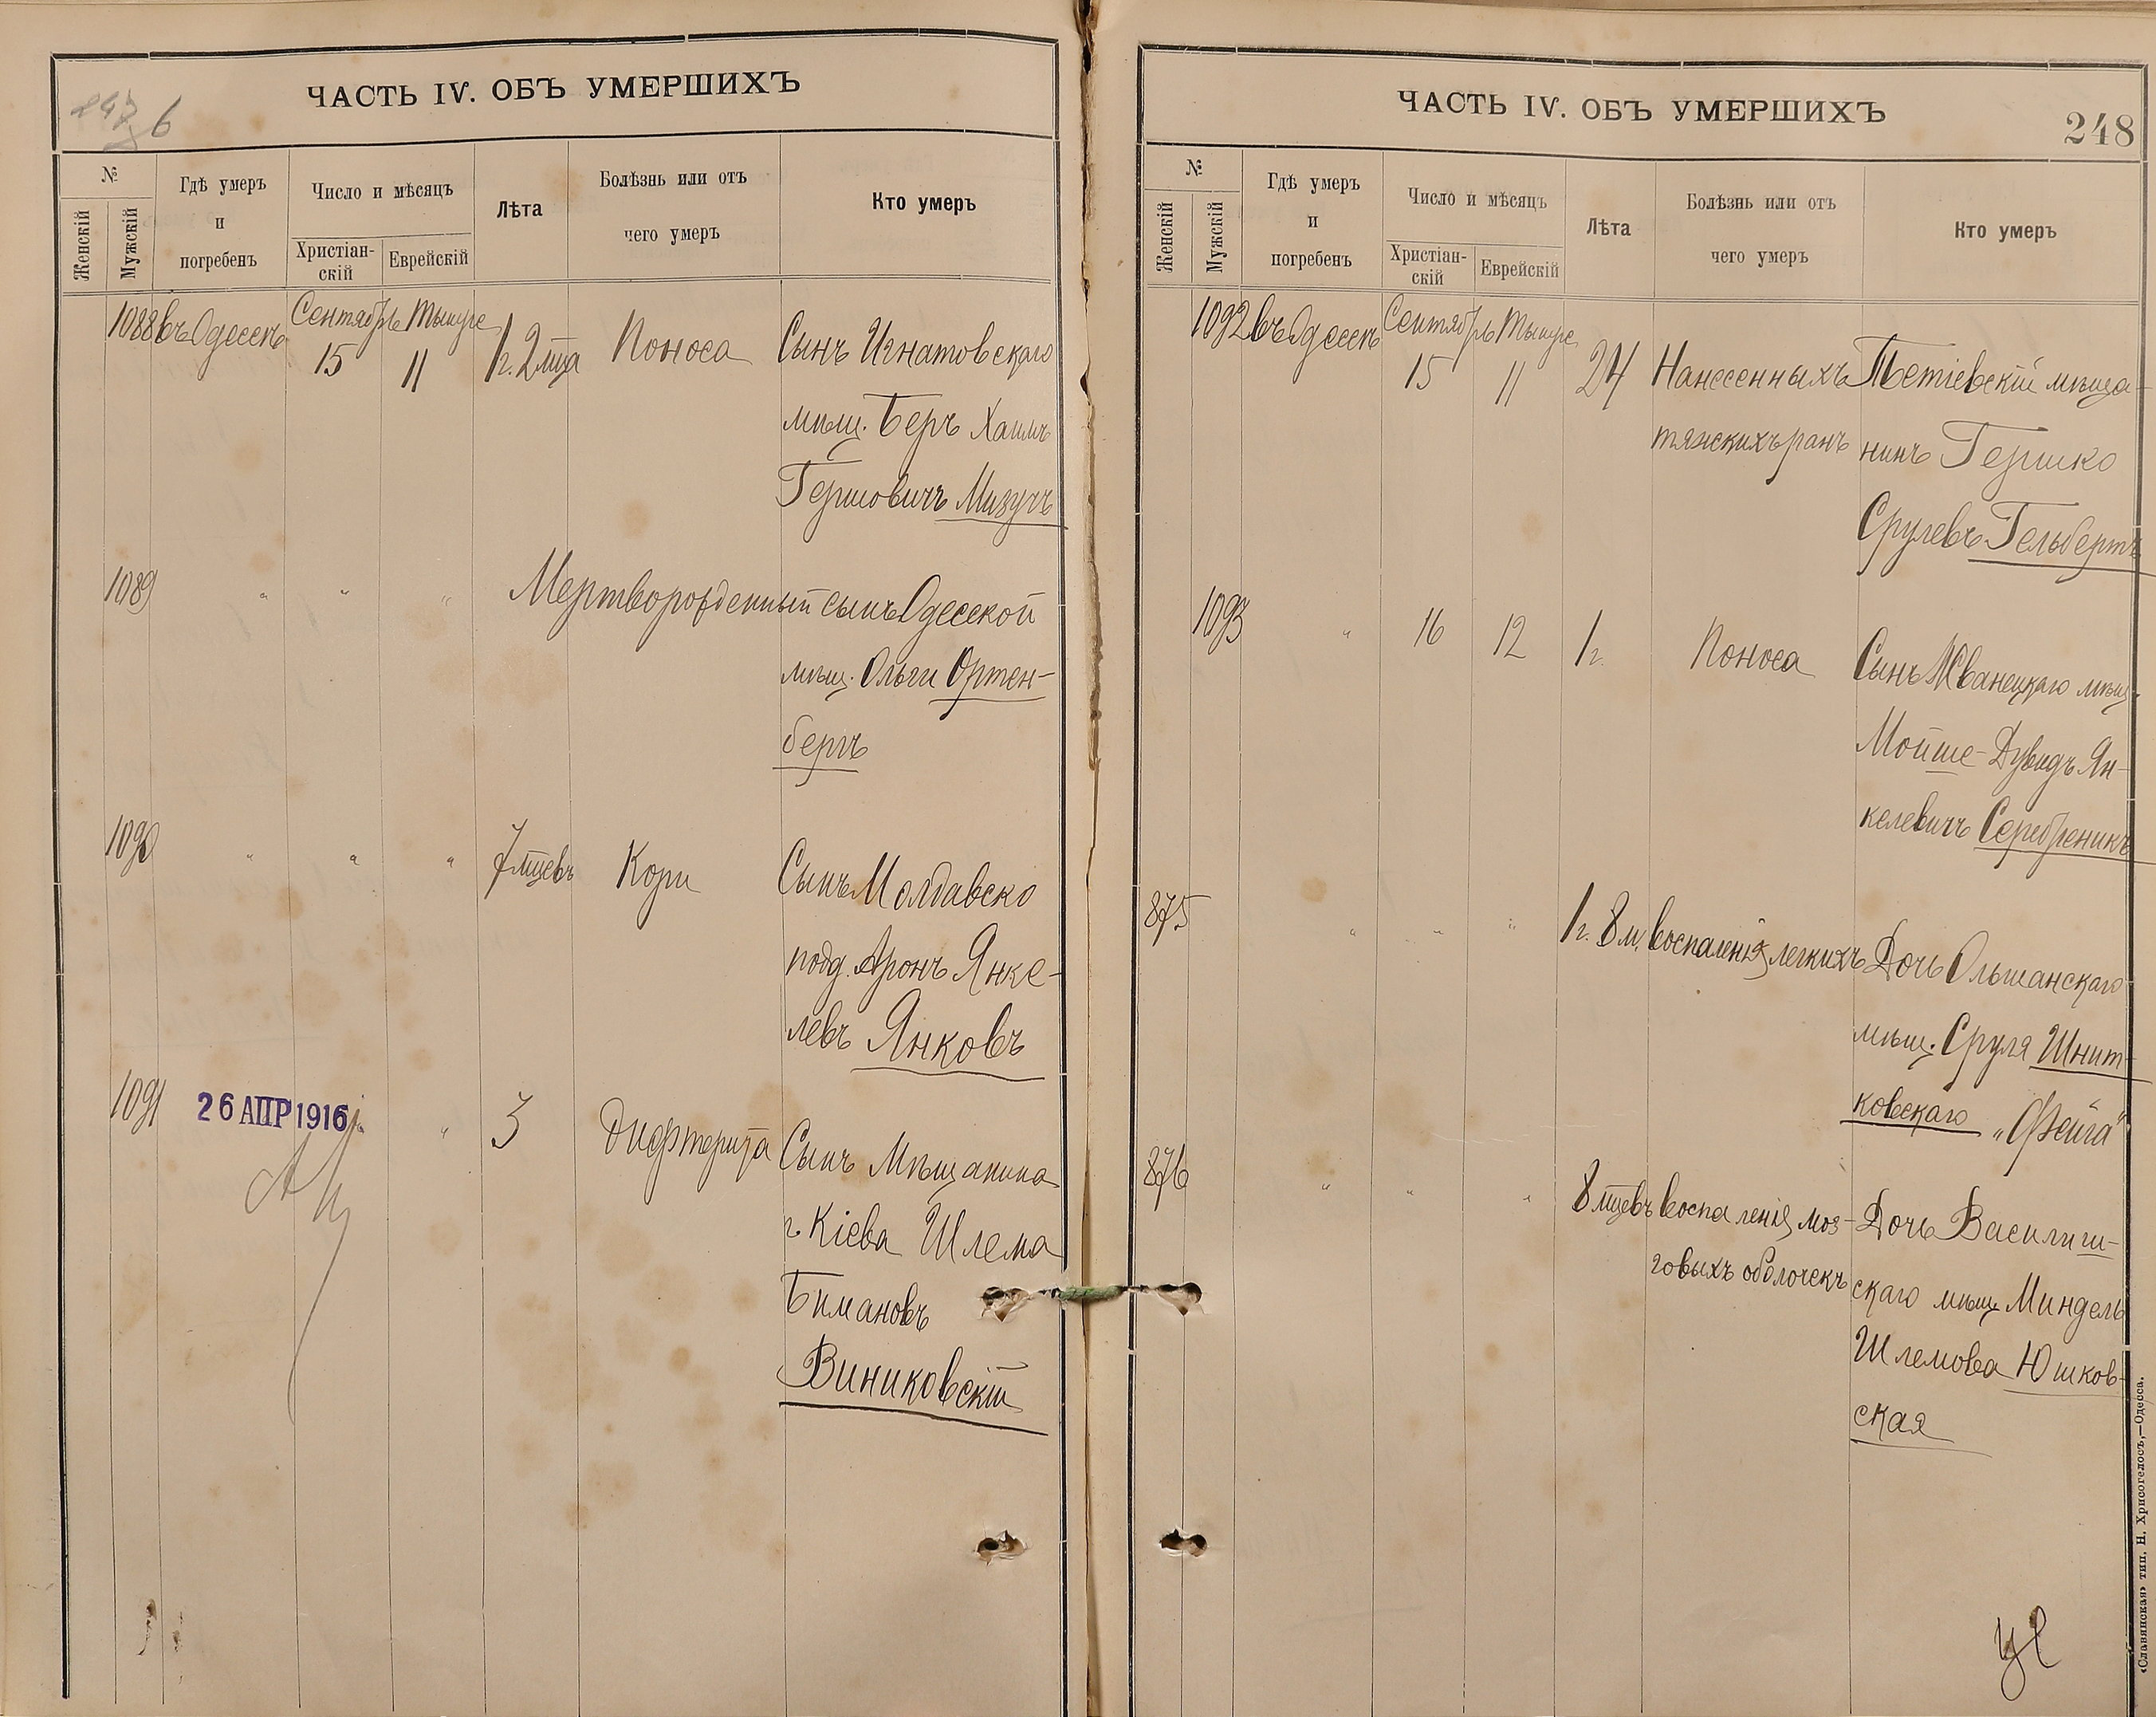 ЧАСТЬ IV. ОБЪ УМЕРШИХЪ
№
Женскій
Мужскій
Гдѣ умеръ
и
погребенъ
Число и мѣсяцъ
Христіан-
скій
Еврейскій
Лѣта
Болѣзнь или отъ
чего умеръ
Кто умеръ
1088 въ Одессѣ Сентябрь Тышре
15 11 1 г. 2 мца Поноса Сынъ Игнатовскаго
мѣщ. Беръ Хаимъ
Гершовичъ Мизучъ
1089 " " " Мертворожденный сынъ Одесской
мѣщ. Ольги Ортен-
бергъ
1090 " " " 7 мцевъ Кори Сынъ Молдавско
подд. Аронъ Янке-
левъ Янковъ
1091 26 АПР 1916 " 3 Дифтерита Сынъ Мѣщанина
г. Кіева Шлема
Бимановъ
Виниковскій
ЧАСТЬ IV. ОБЪ УМЕРШИХЪ
248
№
Женскій
Мужскій
Гдѣ умеръ
и
погребенъ
Число и мѣсяцъ
Христіан-
скій
Еврейскій
Лѣта
Болѣзнь или отъ
чего умеръ
Кто умеръ
1092 въ Одессѣ Сентябрь Тышре
15 11 24 Нанесенныхъ Тетіевскій мѣща-
тяжкихъ ранъ нинъ Гершко
Срулевъ Гельбертъ
1093 " 16 12 1 г. Поноса Сынъ Жванецкаго мѣщ.
Мойше-Дувидъ Ян-
келевичъ Серебреникъ
875 " " " 1 г. 8 м. Воспаленія легкихъ Дочь Ольшанскаго
мѣщ. Сруля Шнит-
ковскаго „Фейга"
876 " " " 8 мцевъ Воспаленія моз- Дочь Василиги-
говыхъ оболочекъ скаго мѣщ. Миндель
Шлемова Юшков-
ская
«Славянская» тип. Н. Хрисогелосъ,—Одесса.